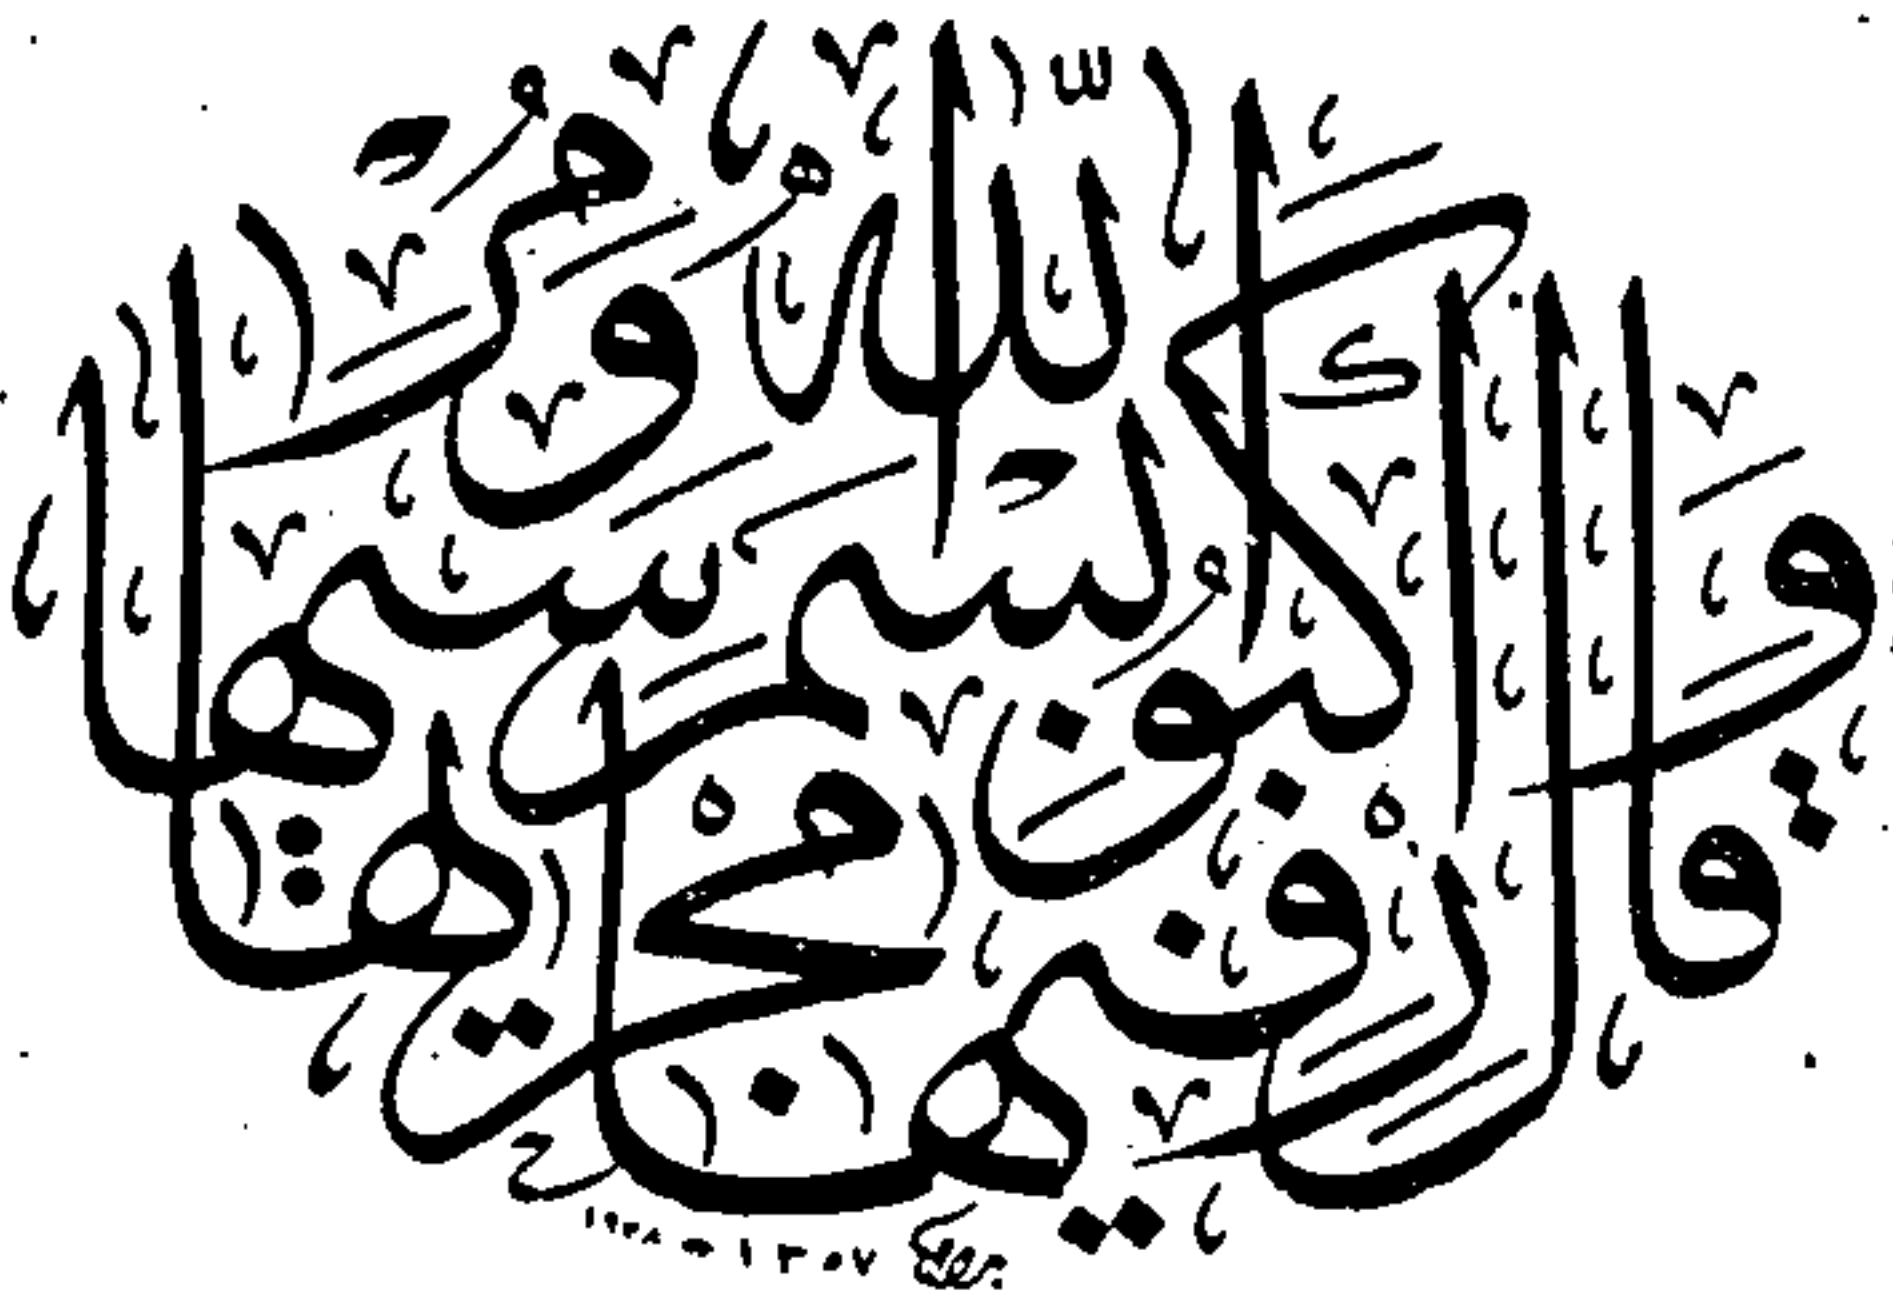 وقال اركبوا فيها بسم الله مجريها ومرسيها
١٣٥٧ - ١٩٣٨